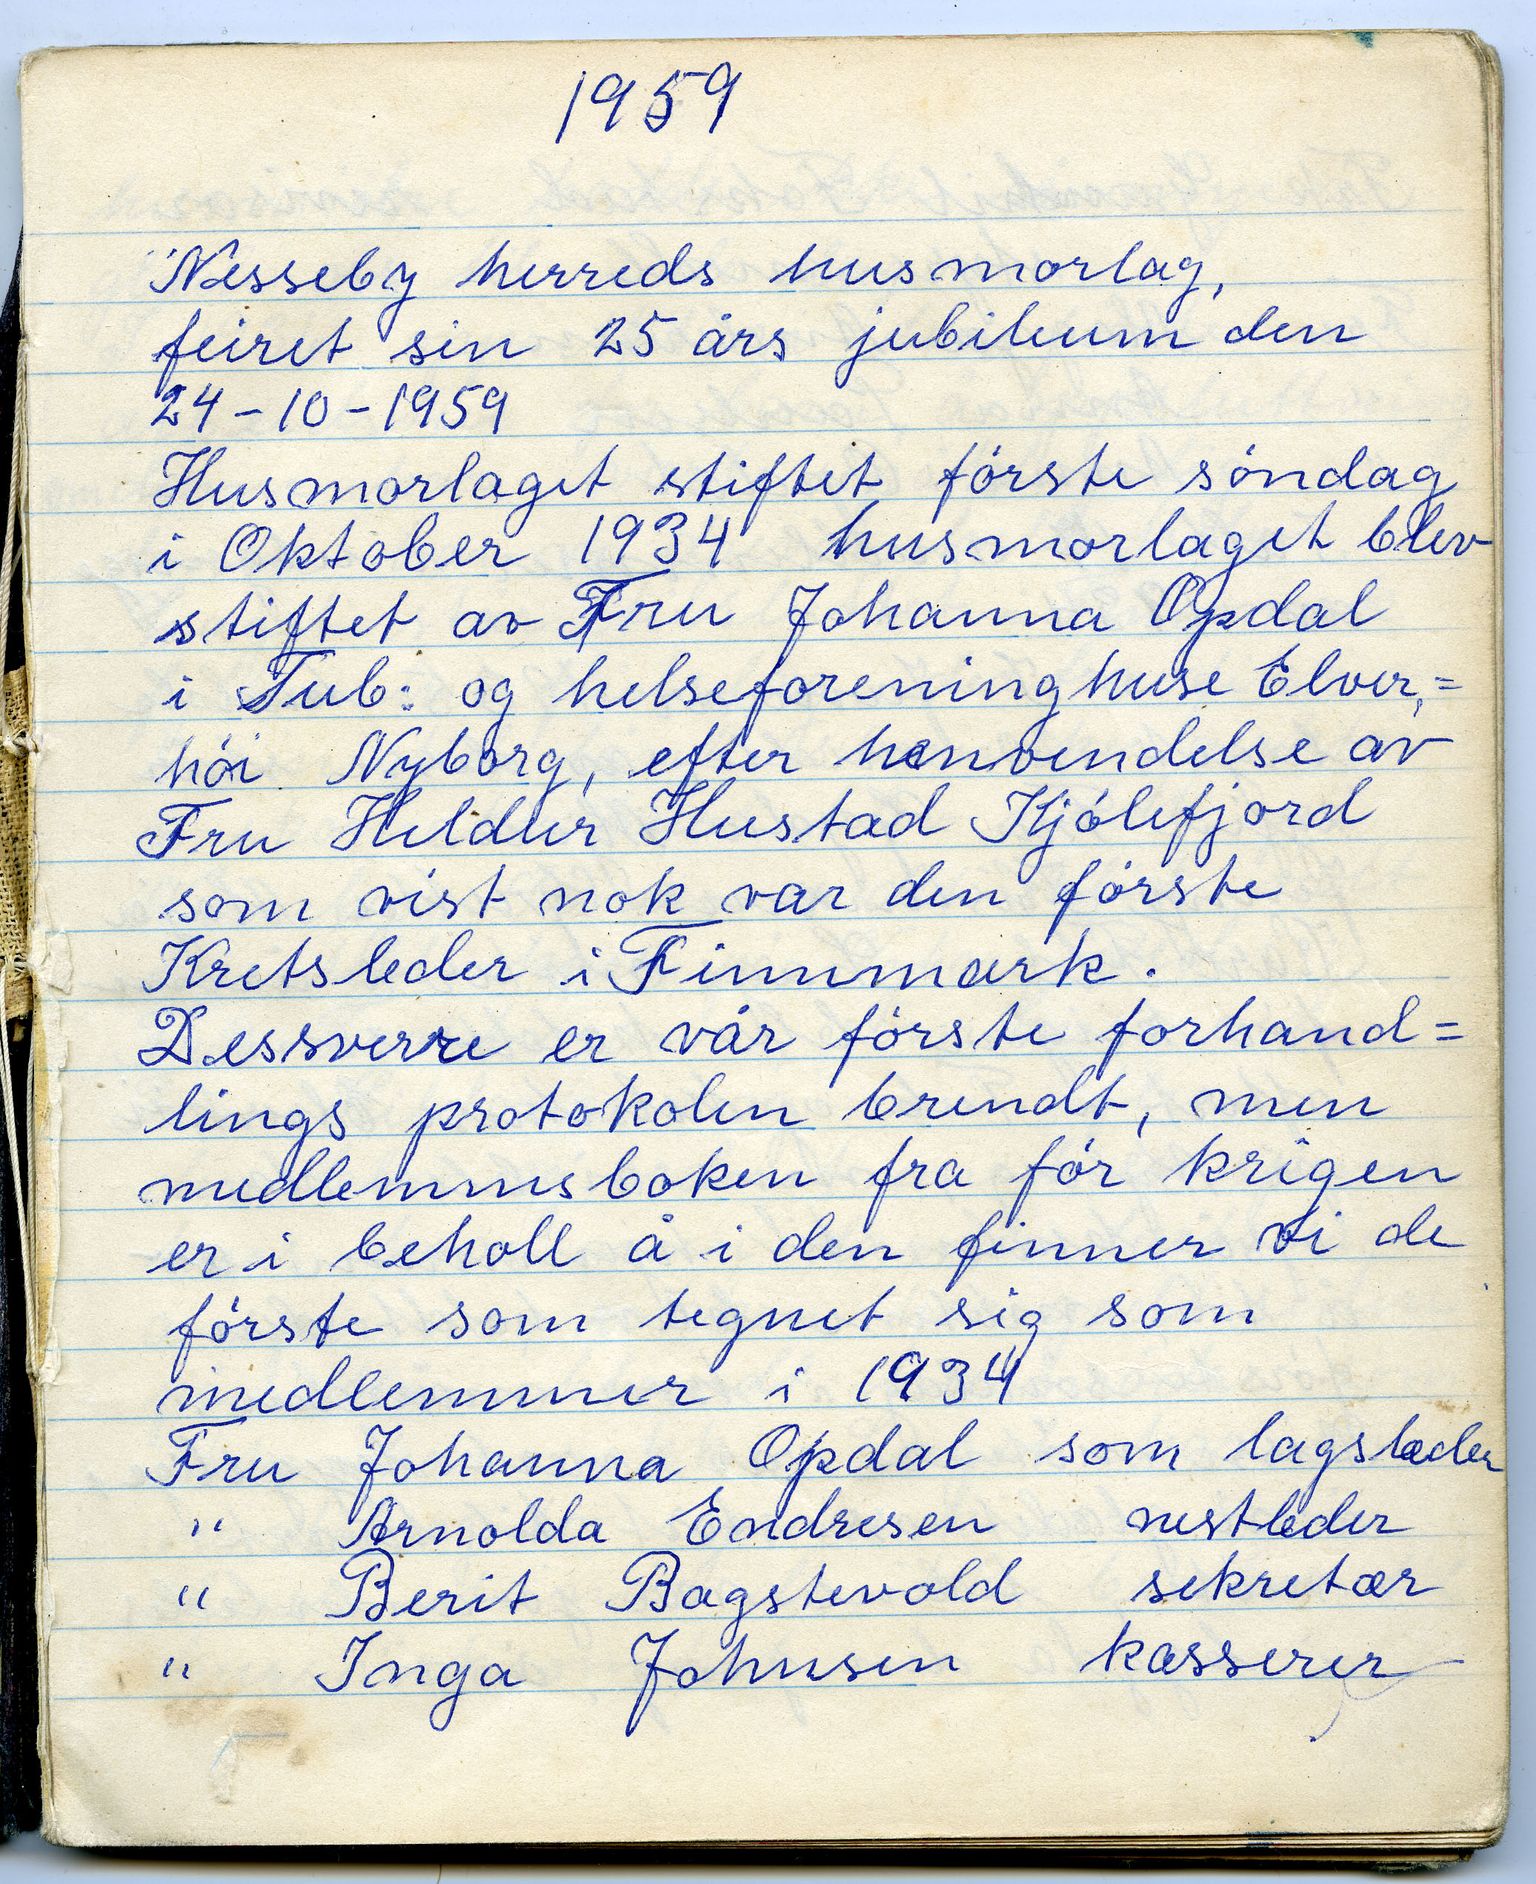 1959
"Nesseby herreds husmorlag,
feiret sin 25 års jubileum den
24-10-1959
Husmorlaget stiftet förste söndag
i Oktober 1934 husmorlaget blev
stiftet av Fru Johanna Opdal
i Tub: og helseforeninghuse Elver,=
höi Nyborg, efter henvendelse av
Fru Heldur Hustad Kjölefjord
som vist nok var den förste
Kretsleder i Finnmark.
Dessverre er vår förste forhand=
lings protokolen brendt, men
medlemmsboken fra för krigen
er i beholl å i den finner vi de
förste som tegnet sig som
medlemmer i 1934
Fru Johanna Opdal som lagsleder
" Arnolda Endresen nestleder
" Berit Bagstevold sekretær
" Inga Johnsen kasserer